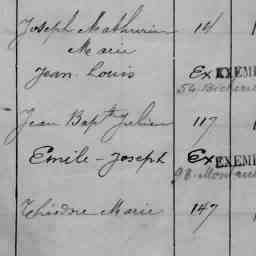 Joseph Mathurin 101
Marie
Jean Louis Ex EXEM
Jean Bapte Julien 117
Emile-Joseph Ex EXEM
98
Théodore Marie 147